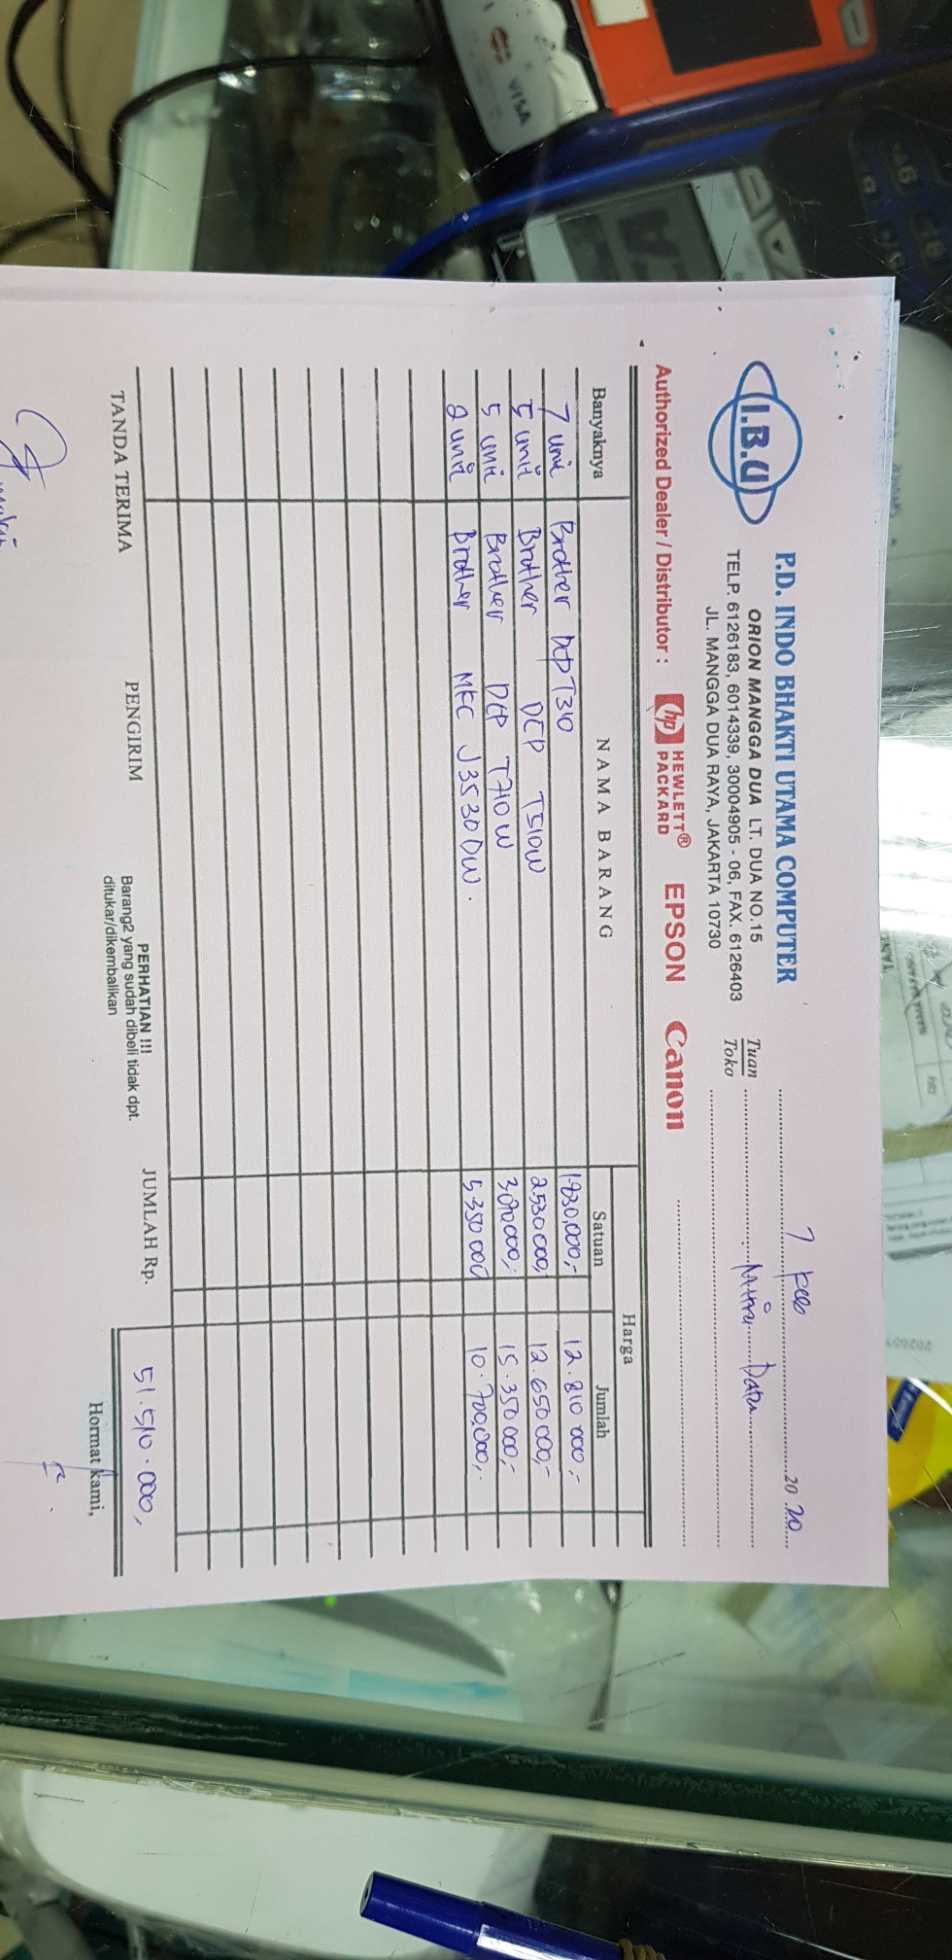 I.B.U
P.D. INDO BHAKTI UTAMA COMPUTER
ORION MANGGA DUA LT. DUA NO.15
TELP. 6126183, 6014339, 30004905 - 06, FAX. 6126403
JL. MANGGA DUA RAYA, JAKARTA 10730
7 Feb 20 20
Tuan
Toko
Mitra Data
Authorized Dealer / Distributor : hp HEWLETT® PACKARD EPSON Canon
Banyaknya NAMA BARANG Harga
Satuan Jumlah
7 unit Brother DCP T310 1.830.000,- 12.810 000,-
5 unit Brother DCP T510W 2530 000, 12.650 000,-
5 unit Brother DCP T710W 3070.000,- 15.350 000,-
2 unit Brother MFC J3530DW. 5.350 000 10.700.000,-
JUMLAH Rp. 51.510.000,
TANDA TERIMA PENGIRIM
PERHATIAN !!!
Barang2 yang sudah dibeli tidak dpt.
ditukar/dikembalikan
Hormat kami,
VISA